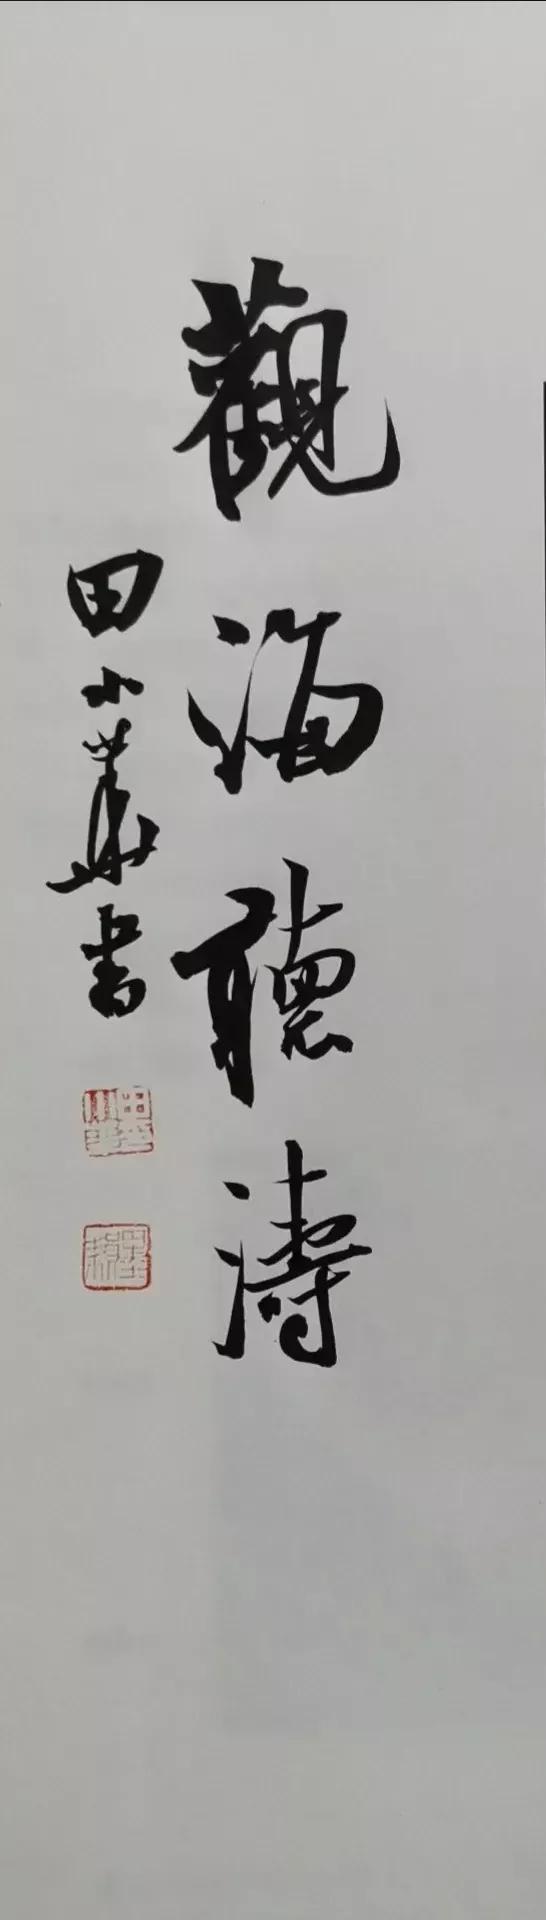 觀海聽濤
田小華書